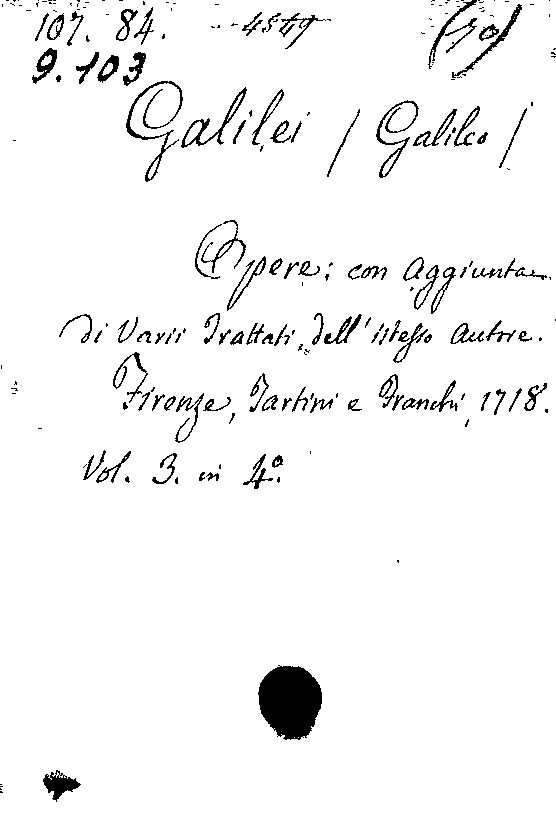 107. 84. 4549 (70)
9.103
Galilei / Galileo /
Opere; con aggiunta
di Varii Trattati, dell' istesso autore.
Firenze, Tartini e Franchi, 1718.
Vol. 3. in 4º.